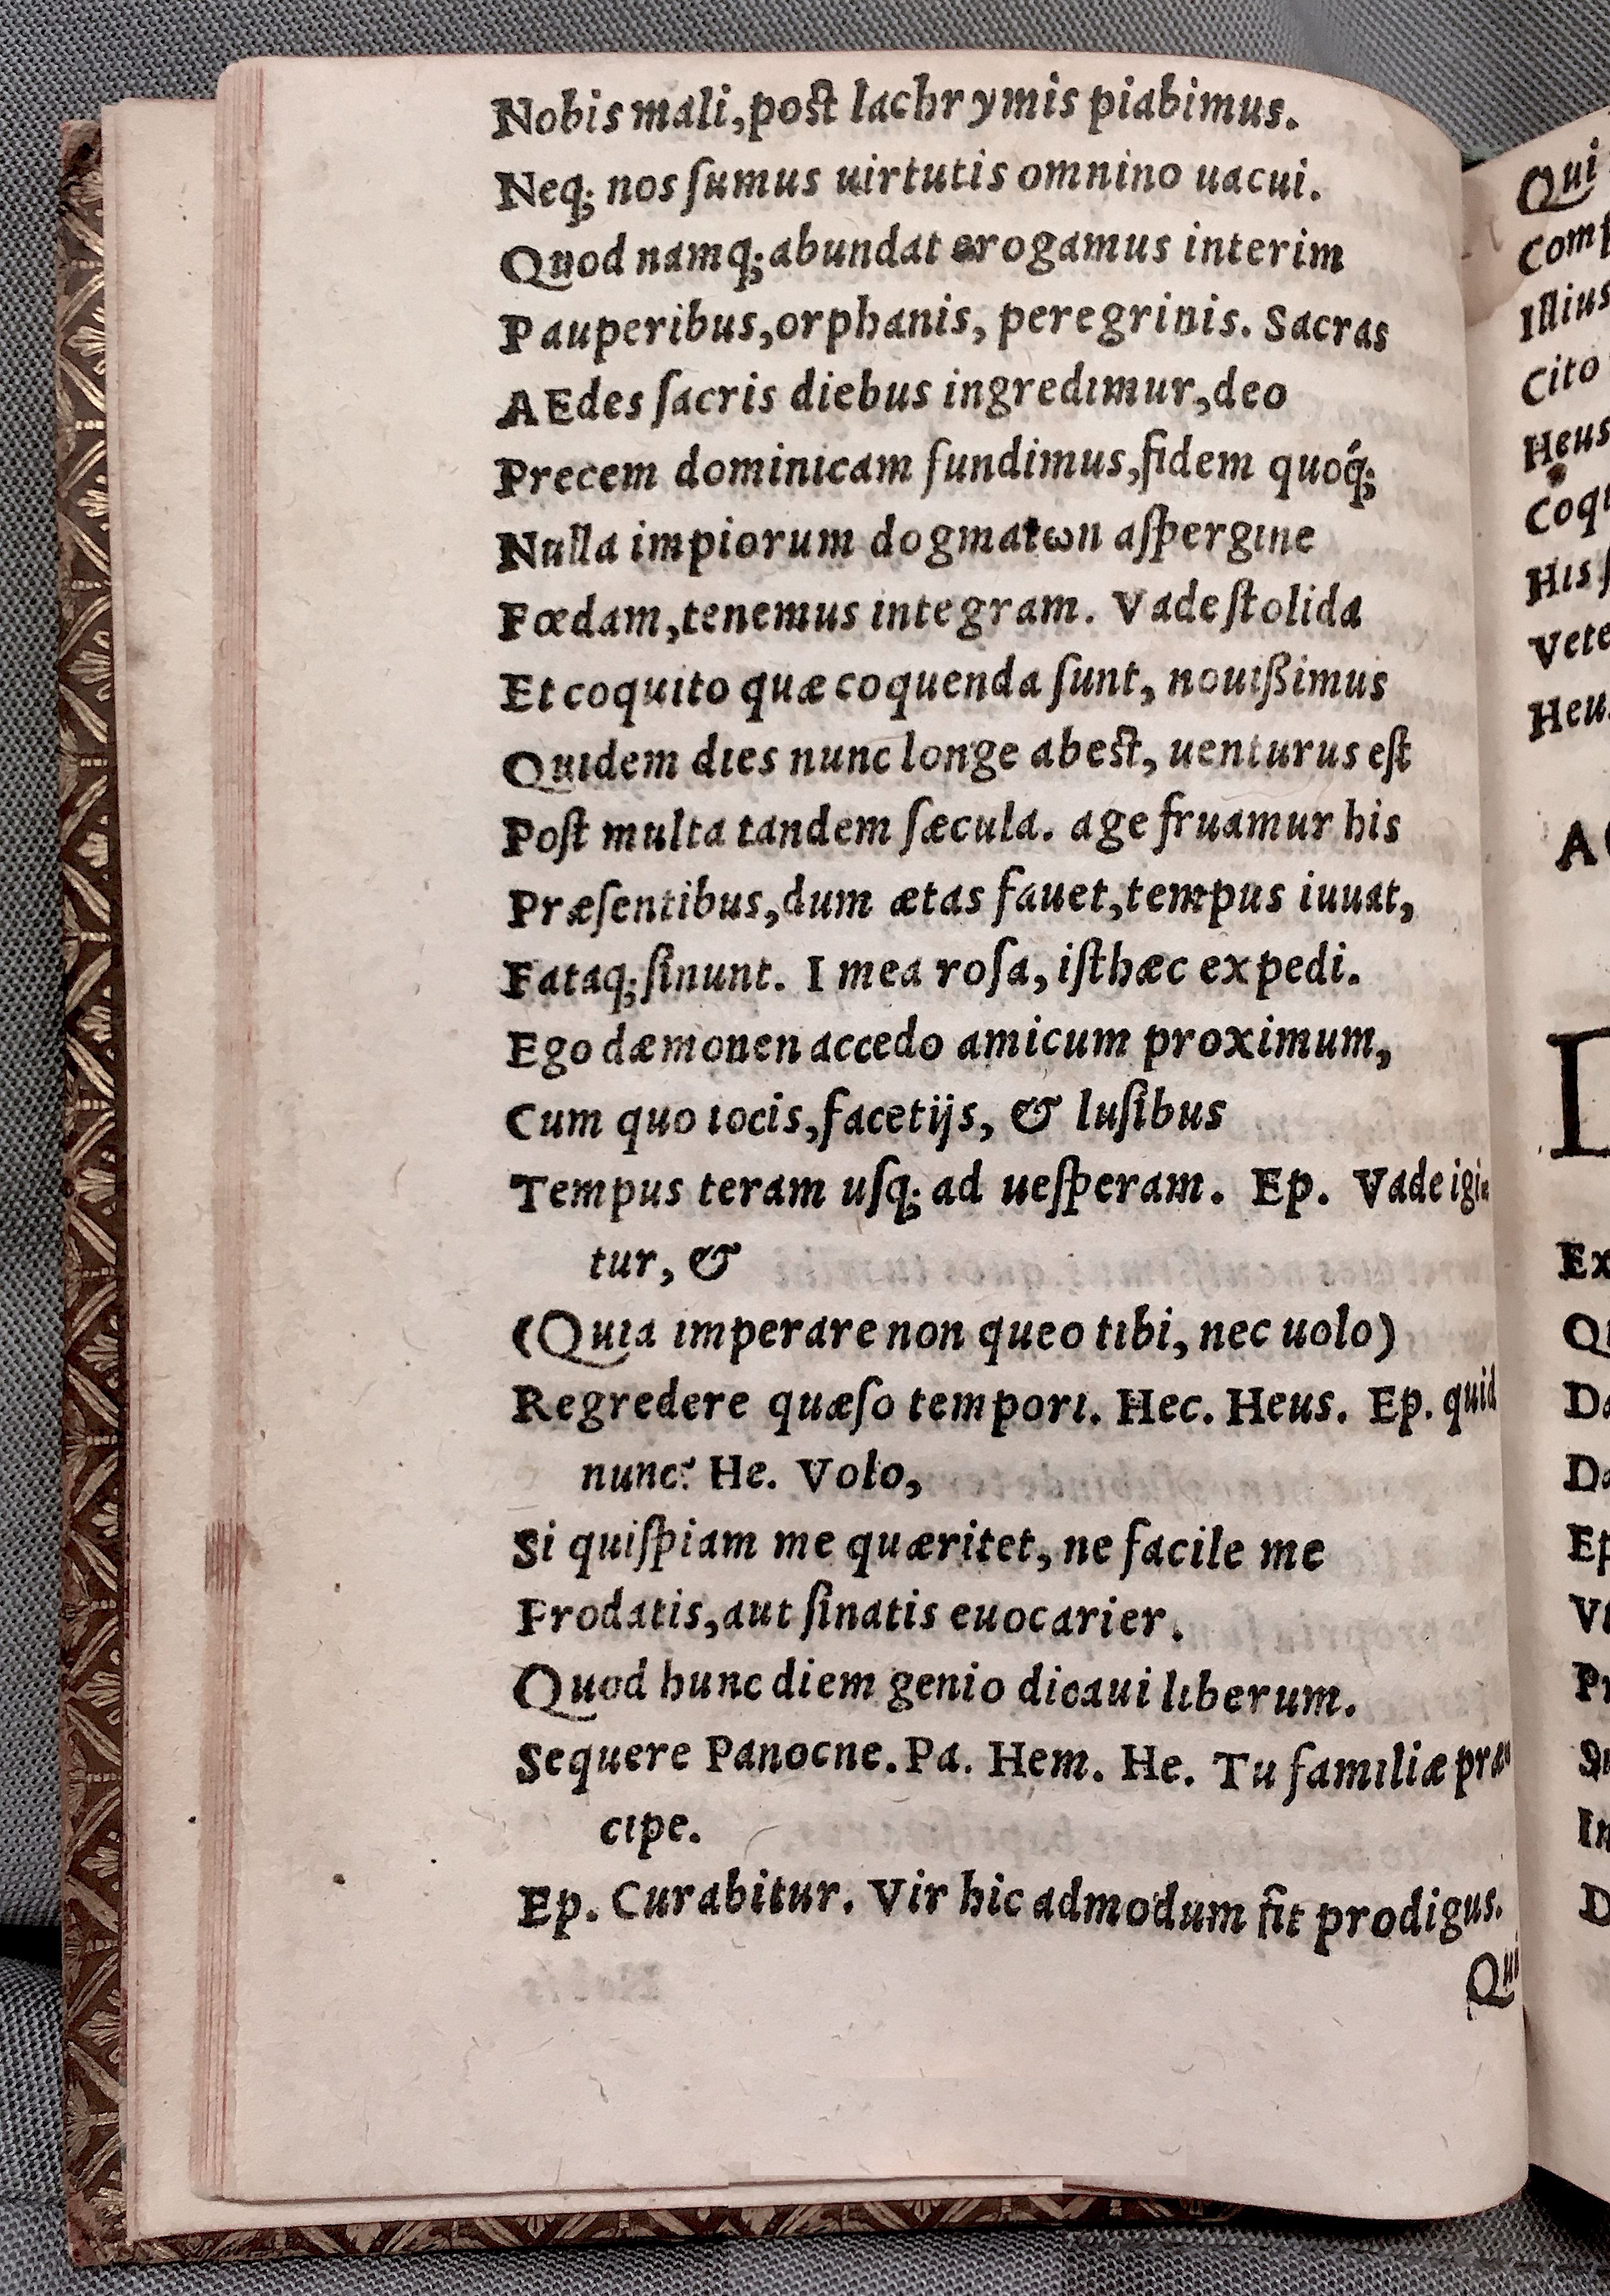 Nobis mali, post lachrymis piabimus.
Neq; nos ſumus uirtutis omnino uacui.
Quod namq; abundat erogamus interim
Pauperibus, orphanis, peregrinis. Sacras
AEdes ſacris diebus ingredimur, deo
Precem dominicam fundimus, fidem quoq́;
Nulla impiorum dogmatωn aſpergine
Fœdam, tenemus integram. Vade ſtolida
Et coquito quæ coquenda ſunt, nouißimus
Quidem dies nunc longe abest, uenturus eſt
Poſt multa tandem ſæcula. age fruamur his
Præſentibus, dum ætas fauet, tempus iuuat,
Fataq; ſinunt. I mea roſa, iſthæc expedi.
Ego dæmonen accedo amicum proximum,
Cum quo iocis, facetijs, & luſibus
Tempus teram uſq; ad ueſperam. Ep. Vade igi-
tur, &
(Quia imperare non queo tibi, nec uolo)
Regredere quæſo tempori. Hec. Heus. Ep. quid
nunc? He. Volo,
Si quiſpiam me quæritet, ne facile me
Prodatis, aut ſinatis euocarier.
Quod hunc diem genio dicaui liberum.
Sequere Panocne. Pa. Hem. He. Tu familiæ præ
cipe.
Ep. Curabitur. Vir hic admodum fit prodigus.
Qui
Qui
Illius
Cito
Heus
His
D
Ex